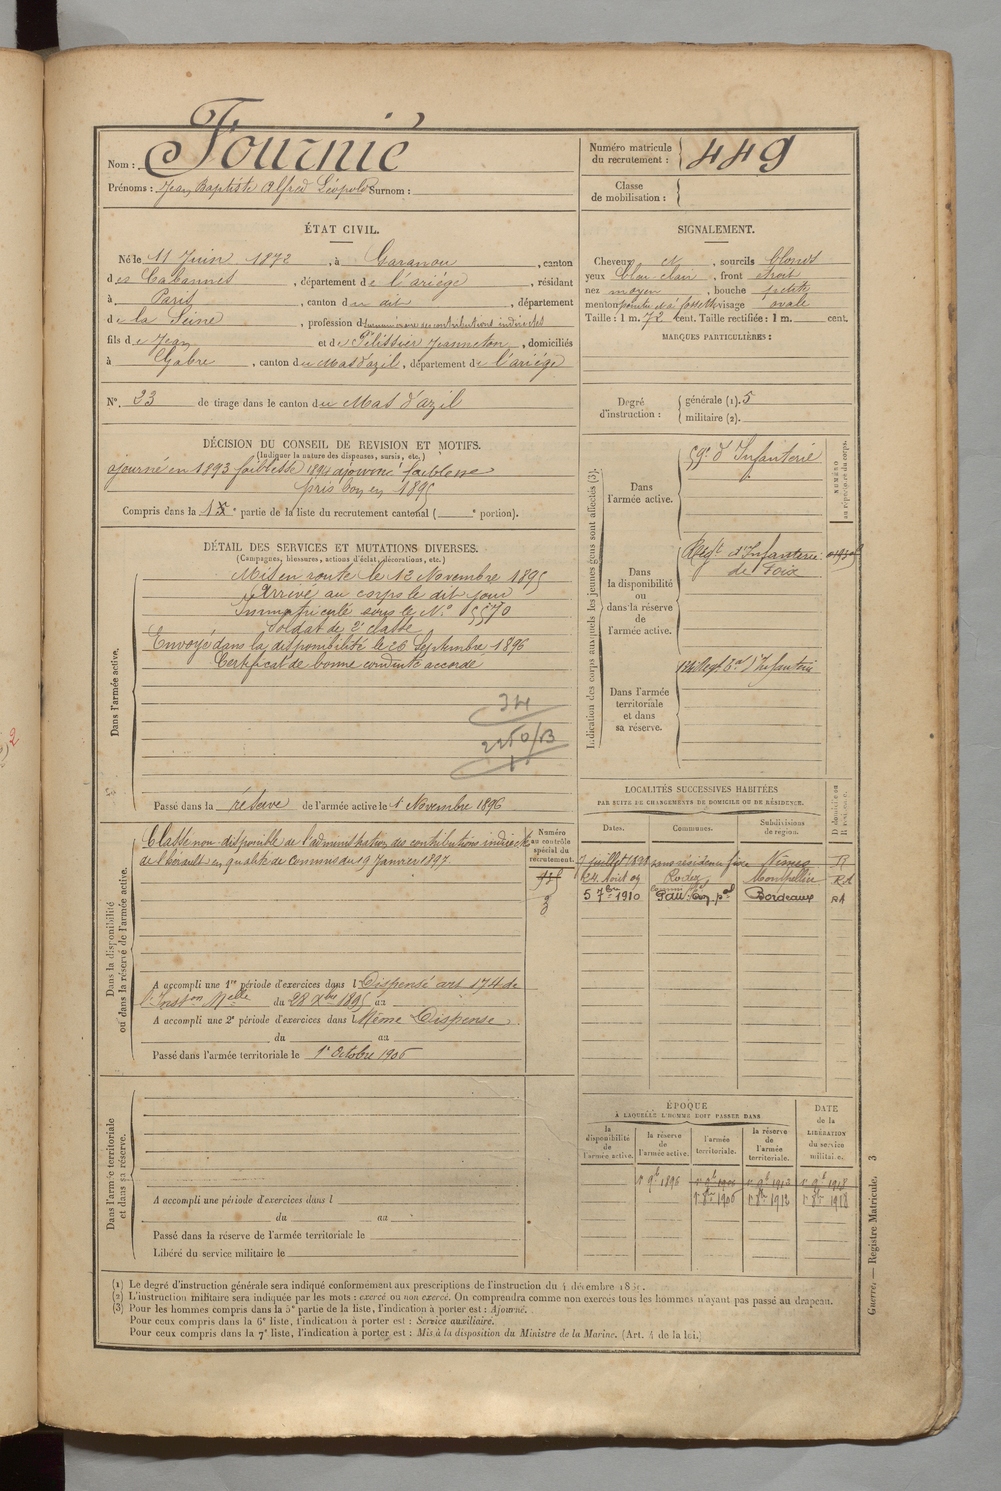 Nom : Fournié
Prénoms : Jean Baptiste Alfred Léopold Surnom :
Numéro matricule du recrutement : 449
Classe de mobilisation :
ÉTAT CIVIL.
Né le 11 Juin 1872, à Garanou, canton
des Cabannes, département de l'ariège, résidant
à Paris, canton du dit, département
de la Seine, profession d surnuméraire des contributions indirectes
fils de Jean et de Pélissier Jeanneton, domiciliés
à Gabre, canton du Mas d'azil, département de l'ariège
N°. 23 de tirage dans le canton du Mas d'azil
SIGNALEMENT.
Cheveux et, sourcils blonds
yeux bleu clair, front étroit
nez moyen, bouche petite
menton pointu et à fossette visage ovale
Taille : 1 m. 72 cent. Taille rectifiée : 1 m. cent.
MARQUES PARTICULIÈRES :
Degré d'instruction : générale (1). 5
militaire (2).
DÉCISION DU CONSEIL DE REVISION ET MOTIFS.
(Indiquer la nature des dispenses, sursis, etc.)
ajourné en 1893 faiblesse 1894 ajourné faiblesse
pris bon en 1895
Compris dans la 1e partie de la liste du recrutement cantonal ( e portion).
DÉTAIL DES SERVICES ET MUTATIONS DIVERSES.
(Campagnes, blessures, actions d'éclat, décorations, etc.)
Dans l'armée active.
Mis en route le 12 Novembre 1895
Arrivé au corps le dit jour
Immatriculé sous le N° 5570
Soldat de 2e classe
Envoyé dans la disponibilité le 20 Septembre 1896
Certificat de bonne conduite accordé
34
2250/13
Passé dans la réserve de l'armée active le 1 Novembre 1896
Indication des corps auxquels les jeunes gens sont affectés (3).
NUMÉRO au répertoire du corps.
Dans l'armée active.
59e d'Infanterie
Dans la disponibilité ou dans la réserve de l'armée active.
Régt d'Infanterie
de Foix
Dans l'armée territoriale et dans sa réserve.
Regt Tal d'Infanterie
Dans la disponibilité ou dans la réserve de l'armée active.
Classé non-disponible de l'administration des contributions indirectes
de l'Hérault en qualité de Commis du 19 Janvier 1897.
Numéro au contrôle spécial du recrutement.
A accompli une 1re période d'exercices dans l Dispensé art 174 de
l'Inston Melle du 28 Xbre 1895 au
A accompli une 2e période d'exercices dans l Même Dispense
du au
Passé dans l'armée territoriale le 1er Octobre 1906
LOCALITÉS SUCCESSIVES HABITÉES
PAR SUITE DE CHANGEMENTS DE DOMICILE OU DE RÉSIDENCE.
Dates. Communes. Subdivisions de région. D domicile ou R résidence.
7 juillet 1898 sans résidence fixe Nîmes R
24 Août 09 Rodez Montpellier RA
5 7bre 1910 Pau Bordeaux RA
Dans l'armée territoriale et dans sa réserve.
A accompli une période d'exercices dans l
du au
Passé dans la réserve de l'armée territoriale le
Libéré du service militaire le
ÉPOQUE
À LAQUELLE L'HOMME DOIT PASSER DANS
la disponibilité de l'armée active.
la réserve de l'armée active.
l'armée territoriale.
la réserve de l'armée territoriale.
DATE de la LIBÉRATION du service militaire.
1r 9b 1896 1r 9b 1906 1r 9b 1912 1r 9b 1918
1r 8bre 1906 1r 8bre 1912 1r 8bre 1918
(1) Le degré d'instruction générale sera indiqué conformément aux prescriptions de l'instruction du 4 décembre
(2) L'instruction militaire sera indiquée par les mots : exercé ou non exercé. On comprendra comme non exercés tous les hommes n'ayant pas passé au drapeau.
(3) Pour les hommes compris dans la 5e partie de la liste, l'indication à porter est : Ajourné.
Pour ceux compris dans la 6e liste, l'indication à porter est : Service auxiliaire.
Pour ceux compris dans la 7e liste, l'indication à porter est : Mis à la disposition du Ministre de la Marine. (Art. 4 de la loi.)
Guerre. — Registre Matricule. 3